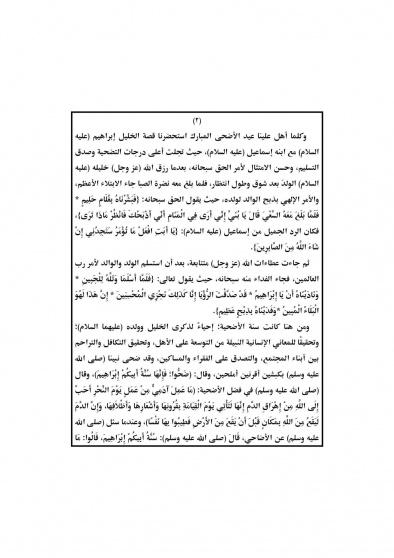 (٢)
وكلما أهل علينا عيد الأضحى المبارك استحضرنا قصة الخليل إبراهيم (عليه
السلام) مع ابنه إسماعيل (عليه السلام)، حيث تجلت أعلى درجات التضحية وصدق
التسليم، وحسن الامتثال لأمر الحق سبحانه، بعدما رزق الله (عز وجل) خليله (عليه
السلام) الولدَ بعد شوق وطول انتظار، فلما بلغ معه نضرة الصبا جاء الابتلاء الأعظم،
والأمر الإلهي بذبح الوالد لولده، حيث يقول الحق سبحانه: {فَبَشَّرْنَاهُ بِغُلَامٍ حَلِيمٍ *
فَلَمَّا بَلَغَ مَعَهُ السَّعْيَ قَالَ يَا بُنَيَّ إِنِّي أَرَى فِي الْمَنَامِ أَنِّي أَذْبَحُكَ فَانْظُرْ مَاذَا تَرَى}،
فكان الرد الجميل من إسماعيل (عليه السلام): {يَا أَبَتِ افْعَلْ مَا تُؤْمَرُ سَتَجِدُنِي إِنْ
شَاءَ اللَّهُ مِنَ الصَّابِرِينَ}.
ثم جاءت عطاءات الله (عز وجل) متتابعة، بعد أن استسلم الولد والوالد لأمر رب
العالمين، فجاء الفداء منه سبحانه، حيث يقول تعالى: {فَلَمَّا أَسْلَمَا وَتَلَّهُ لِلْجَبِينِ *
وَنَادَيْنَاهُ أَنْ يَا إِبْرَاهِيمُ * قَدْ صَدَّقْتَ الرُّؤْيَا إِنَّا كَذَلِكَ نَجْزِي الْمُحْسِنِينَ * إِنَّ هَذَا لَهُوَ
الْبَلَاءُ الْمُبِينُ *وَفَدَيْنَاهُ بِذِبْحٍ عَظِيمٍ}.
ومن هنا كانت سنة الأضحية: إحياءً لذكرى الخليل وولده (عليهما السلام):
وتحقيقًا للمعاني الإنسانية النبيلة من التوسعة على الأهل، وتحقيق التكافل والتراحم
بين أبناء المجتمع، والتصدق على الفقراء والمساكين، وقد ضحى نبينا (صلى الله
عليه وسلم) بكبشين أقرنين أملحين، وقال: (ضَحُّوا؛ فَإِنَّهَا سُنَّةُ أَبِيكُمْ إِبْرَاهِيمَ)، وقال
(صلى الله عليه وسلم) في فضل الأضحية: (مَا عَمِلَ آدَمِيٌّ مِنْ عَمَلٍ يَوْمَ النَّحْرِ أَحَبَّ
إِلَى اللَّهِ مِنْ إِهْرَاقِ الدَّمِ إِنَّهَا لَتَأْتِي يَوْمَ الْقِيَامَةِ بِقُرُونِهَا وَأَشْعَارِهَا وَأَظْلَافِهَا، وَإِنَّ الدَّمَ
لَيَقَعُ مِنَ اللَّهِ بِمَكَانٍ قَبْلَ أَنْ يَقَعَ مِنَ الأَرْضِ فَطِيبُوا بِهَا نَفْسًا)، وعندما سئل (صلى الله
عليه وسلم) عن الأضاحي، قَالَ (صلى الله عليه وسلم): سُنَّةُ أَبِيكُمْ إِبْرَاهِيمَ، قَالُوا: مَا